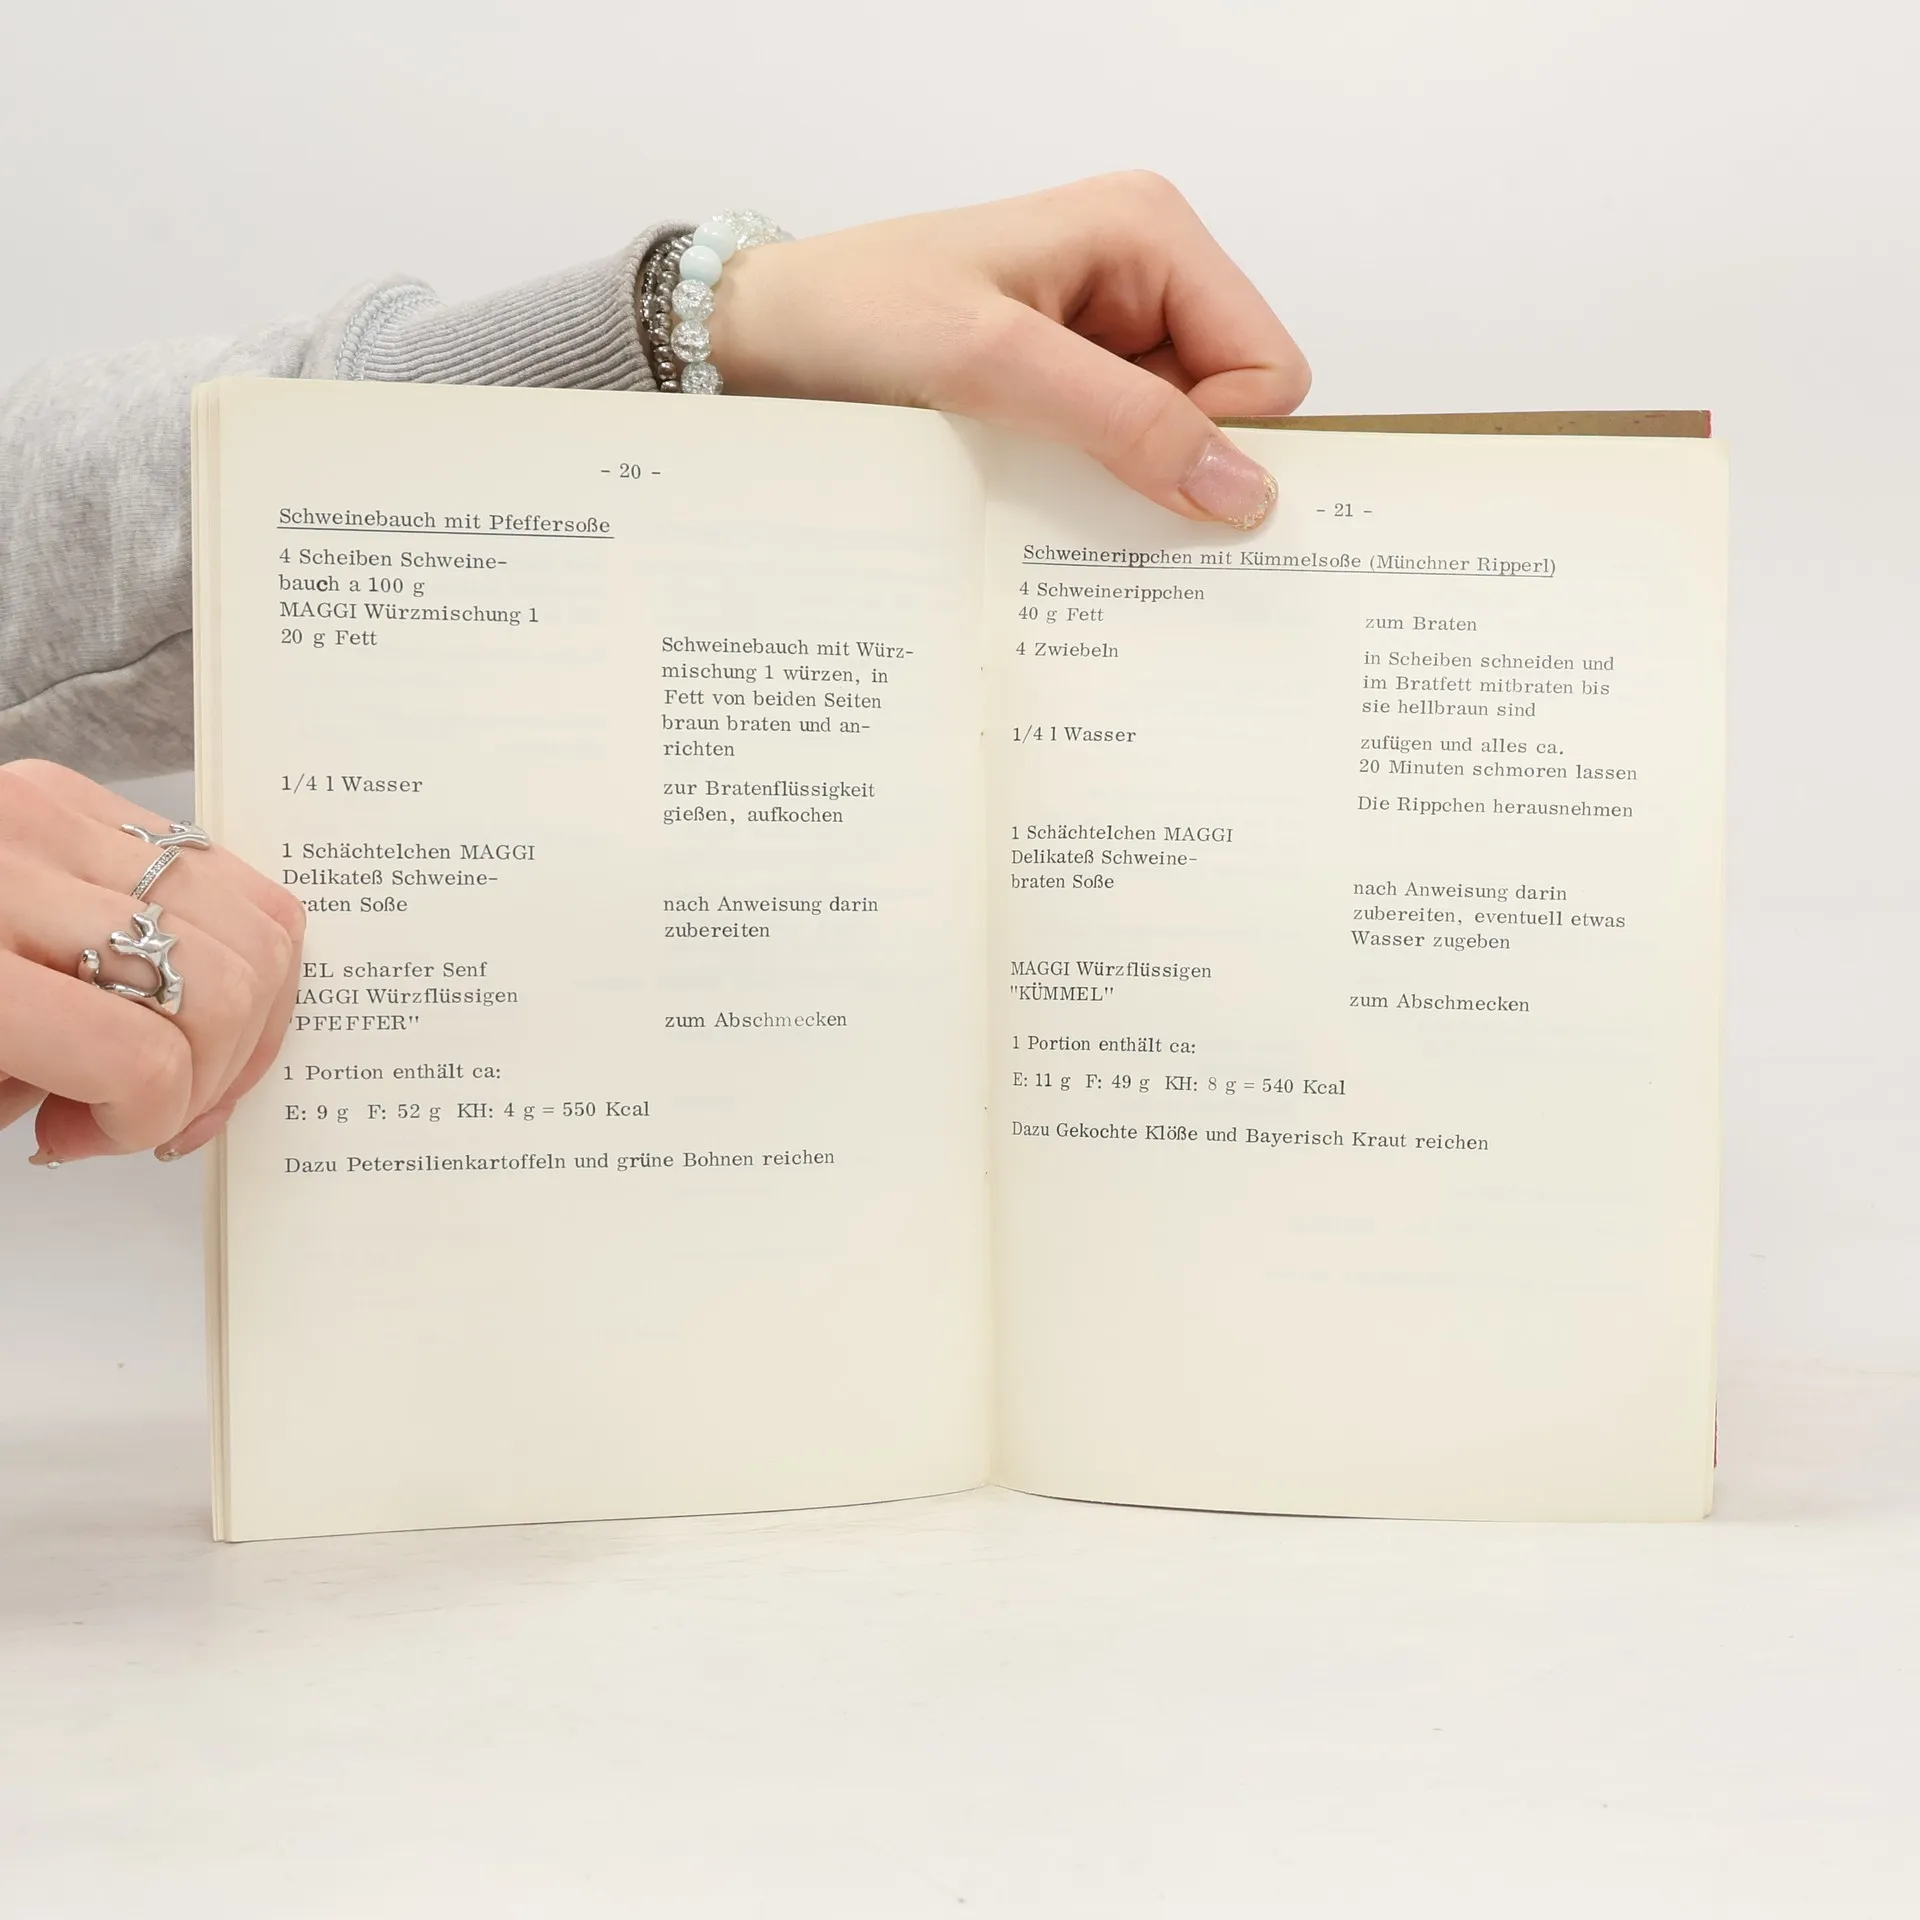 - 20 -
Schweinebauch mit Pfeffersoße
4 Scheiben Schweine-
bauch a 100 g
MAGGI Würzmischung 1
20 g Fett
Schweinebauch mit Würz-
mischung 1 würzen, in
Fett von beiden Seiten
braun braten und an-
richten
1/4 l Wasser
zur Bratenflüssigkeit
gießen, aufkochen
1 Schächtelchen MAGGI
Delikateß Schweine-
raten Soße
nach Anweisung darin
zubereiten
EL scharfer Senf
MAGGI Würzflüssigen
"PFEFFER"
zum Abschmecken
1 Portion enthält ca:
E: 9 g F: 52 g KH: 4 g = 550 Kcal
Dazu Petersilienkartoffeln und grüne Bohnen reichen
- 21 -
Schweinerippchen mit Kümmelsoße (Münchner Ripperl)
4 Schweinerippchen
40 g Fett
zum Braten
4 Zwiebeln
in Scheiben schneiden und
im Bratfett mitbraten bis
sie hellbraun sind
1/4 l Wasser
zufügen und alles ca.
20 Minuten schmoren lassen
Die Rippchen herausnehmen
1 Schächtelchen MAGGI
Delikateß Schweine-
braten Soße
nach Anweisung darin
zubereiten, eventuell etwas
Wasser zugeben
MAGGI Würzflüssigen
"KÜMMEL"
zum Abschmecken
1 Portion enthält ca:
E: 11 g F: 49 g KH: 8 g = 540 Kcal
Dazu Gekochte Klöße und Bayerisch Kraut reichen